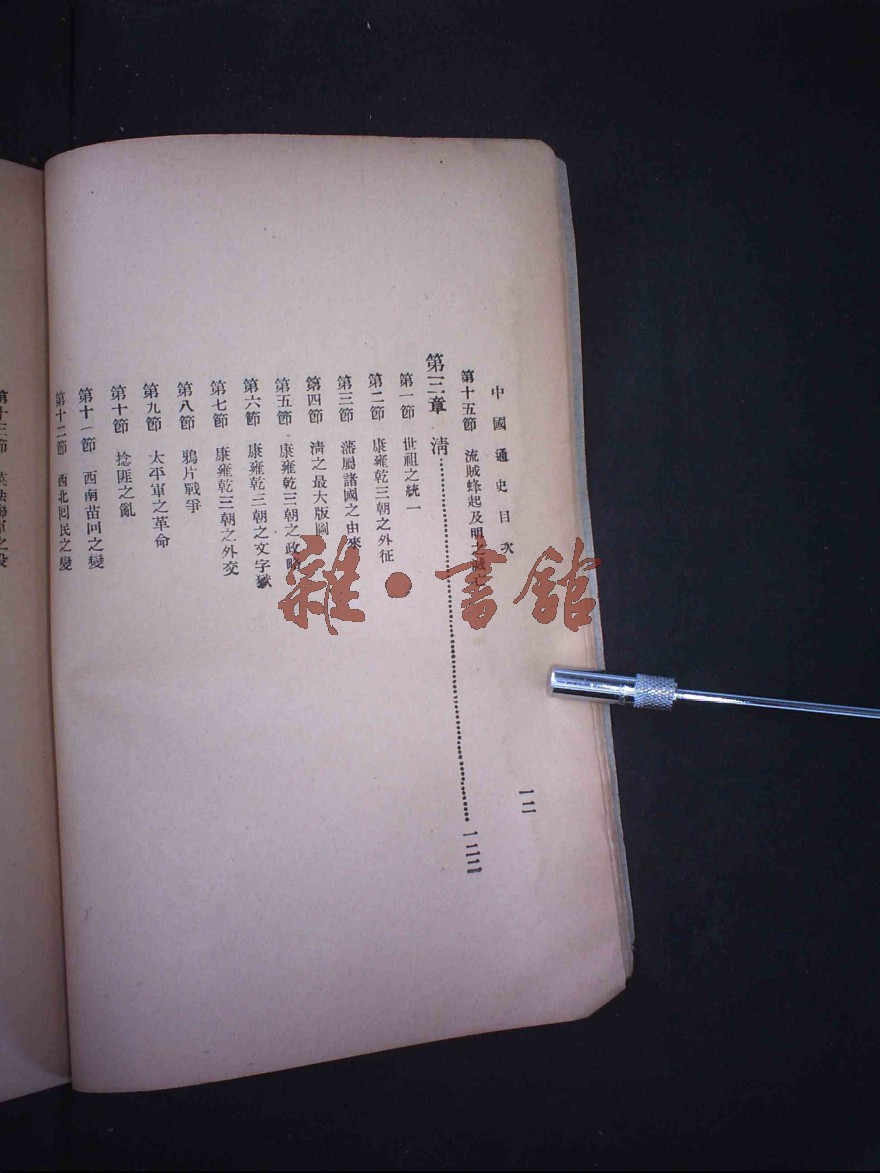 中國通史目次
一二
第十五節 流賊蜂起及明之滅亡
第三章 清
一二二
第一節 世祖之統一
第二節 康雍乾三朝之外征
第三節 藩屬諸國之由來
第四節 清之最大版圖
第五節 康雍乾三朝之政略
第六節 康雍乾三朝之文字獄
第七節 康雍乾三朝之外交
第八節 鴉片戰爭
第九節 太平軍之革命
第十節 捻匪之亂
第十一節 西南苗回之變
第十二節 西北回民之變
第十三節 英法聯軍之役
雜·書館